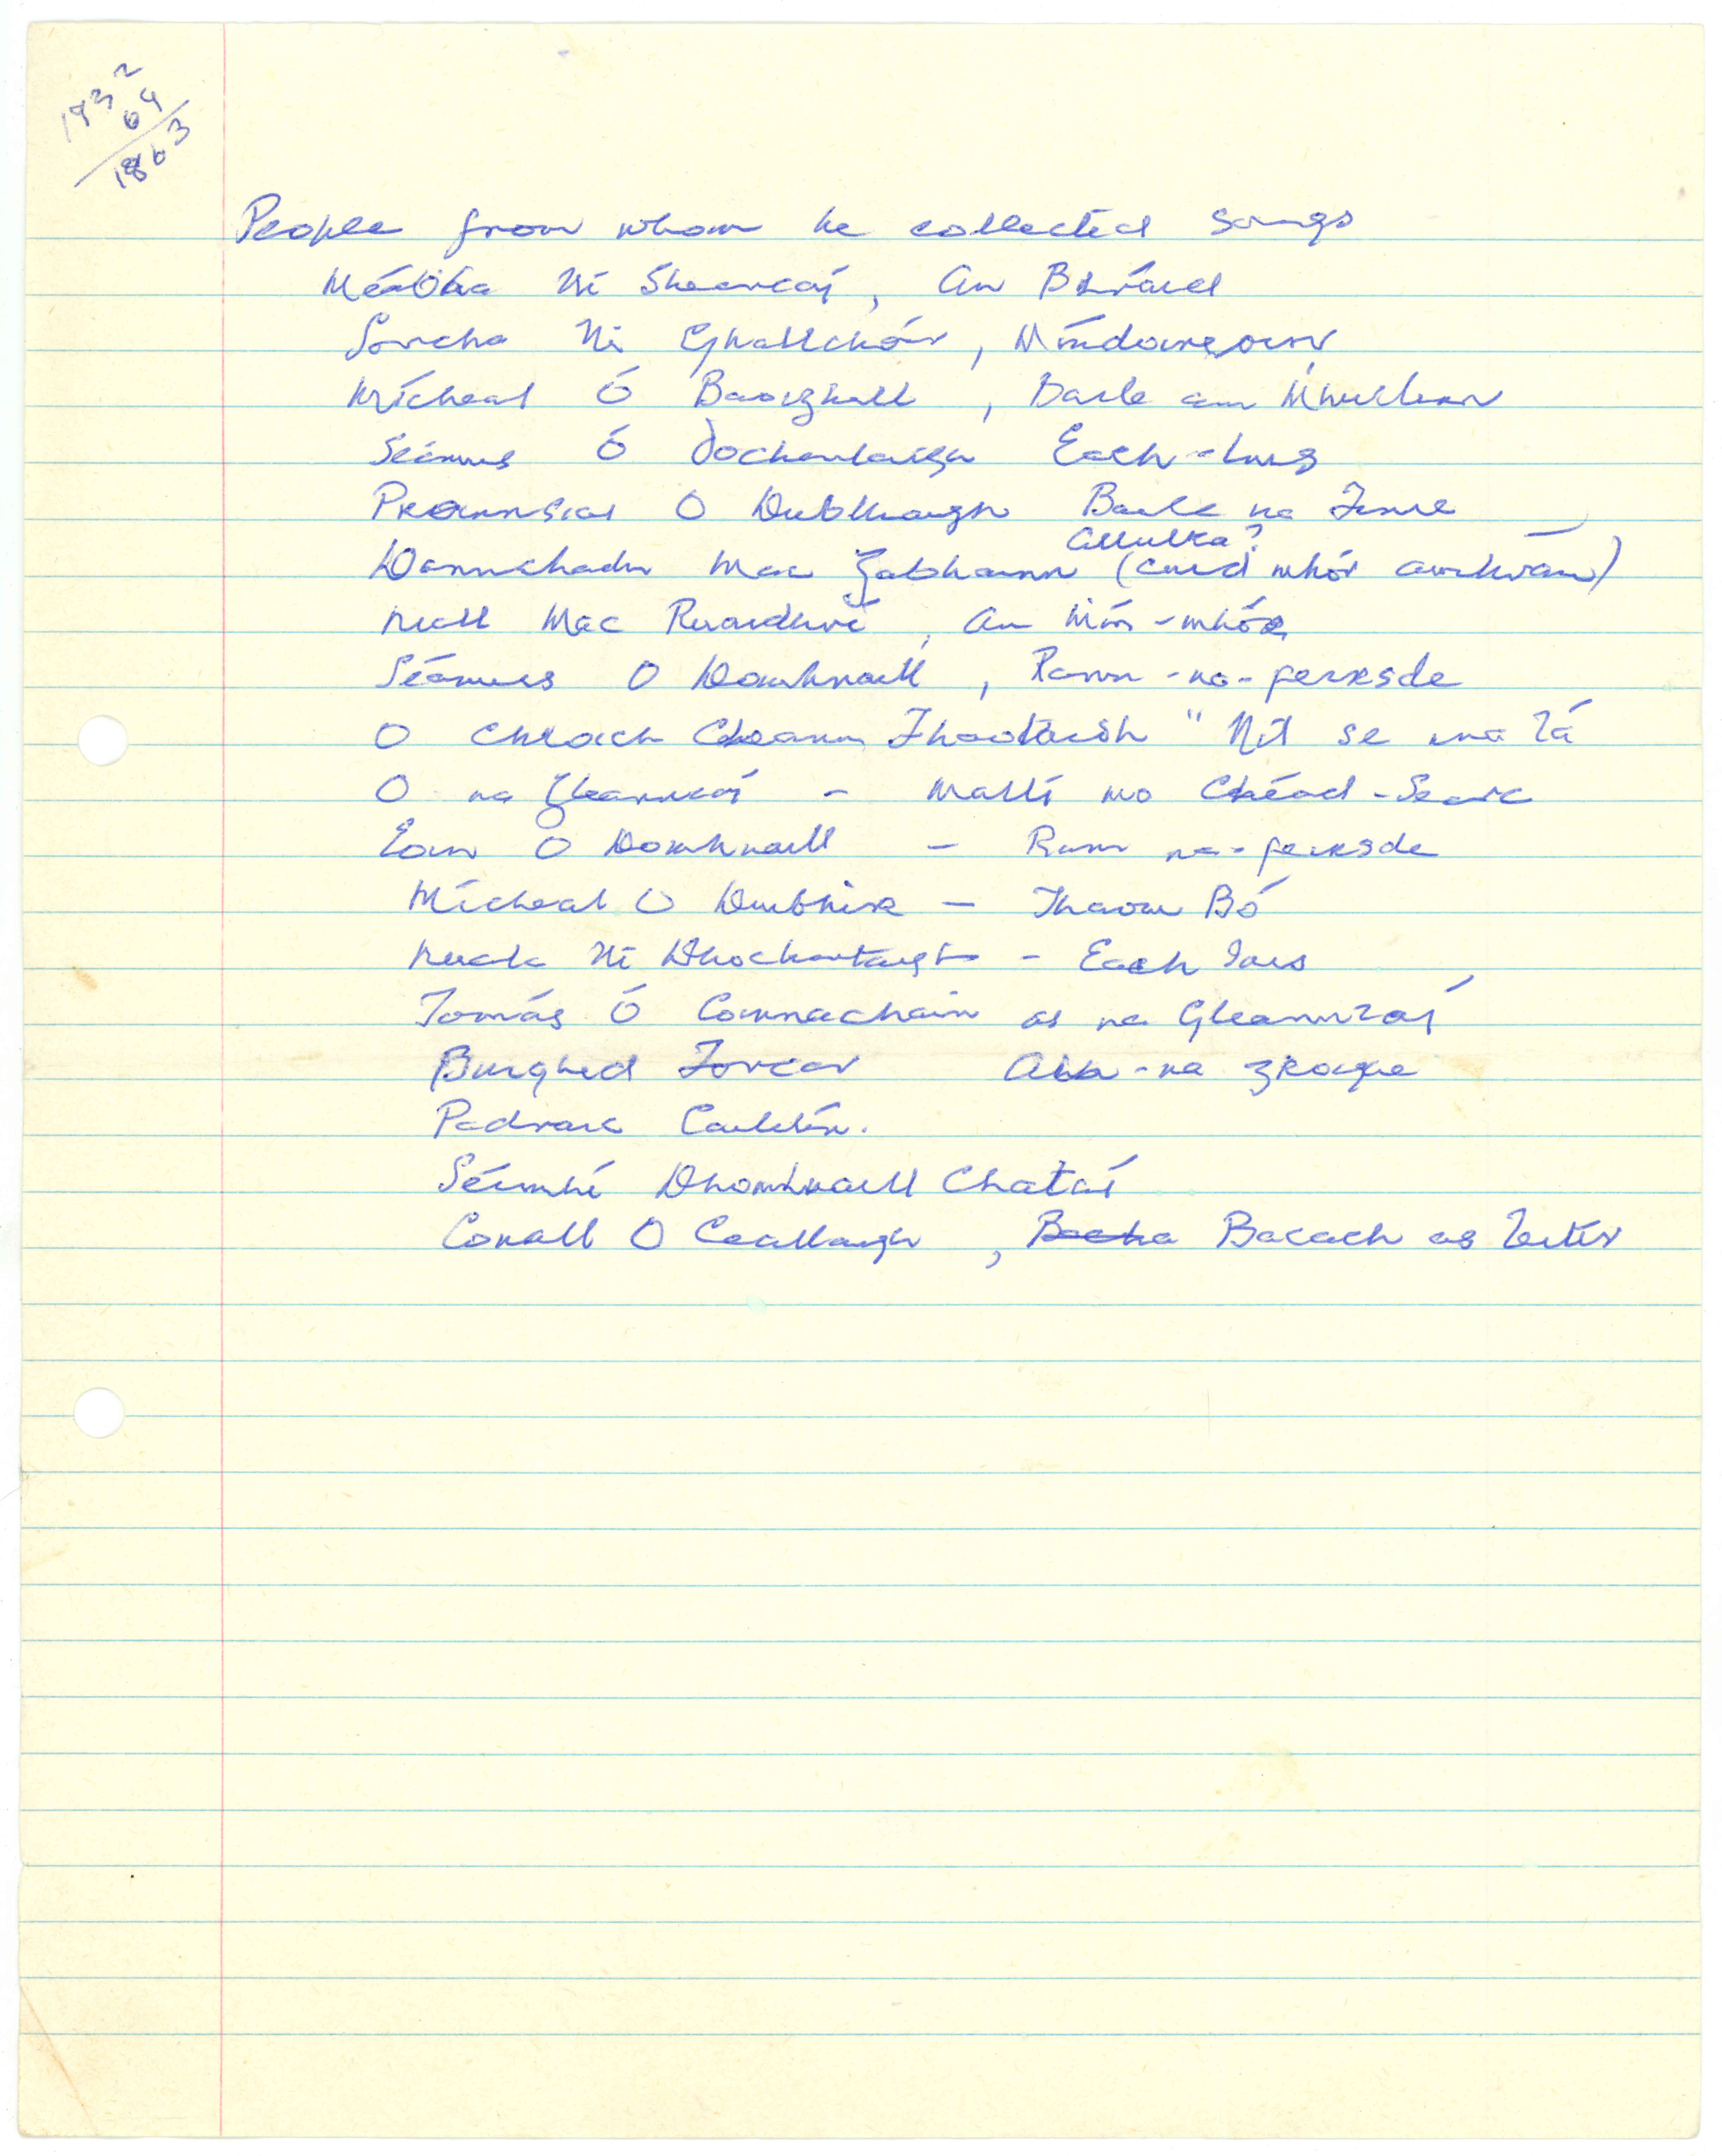 1932
64
1863
People from whom he collected songs
Méabha Ní Shearcaí, An Bráid
Sorcha Ni Ghallchóir, Míndoireoin
Mícheal Ó Baoighill, Baile an Mhuilinn
Séamus Ó Dochartaigh Each-Inis
Proinnsias O Dubhthaigh Baile na Finne
allulka?
Donnchadh Mac Gabhann (cuid mhór amhrán)
Niall Mac Ruaidhrí, An Mín-mhór
Séamus O Domhnaill, Rann-na-feirsde
O chroich Cheann Thoataidh "Níl se ina lá
O na Gleanntaí - Mallí mo Chéad-Searc
Eoin O Domhnaill - Rinn na-feirsde
Mícheal O Duibhir - Thaoin Bó
Nuala Ní Dhochartaigh - Each Inis
Tomás Ó Connacháin as na Gleanntaí
Buighid Forcar Ath-na graige
Padraic Cailín.
Séimhí Dhomhnaill Chataí
Conall O Ceallaigh, Bacach as Leitir